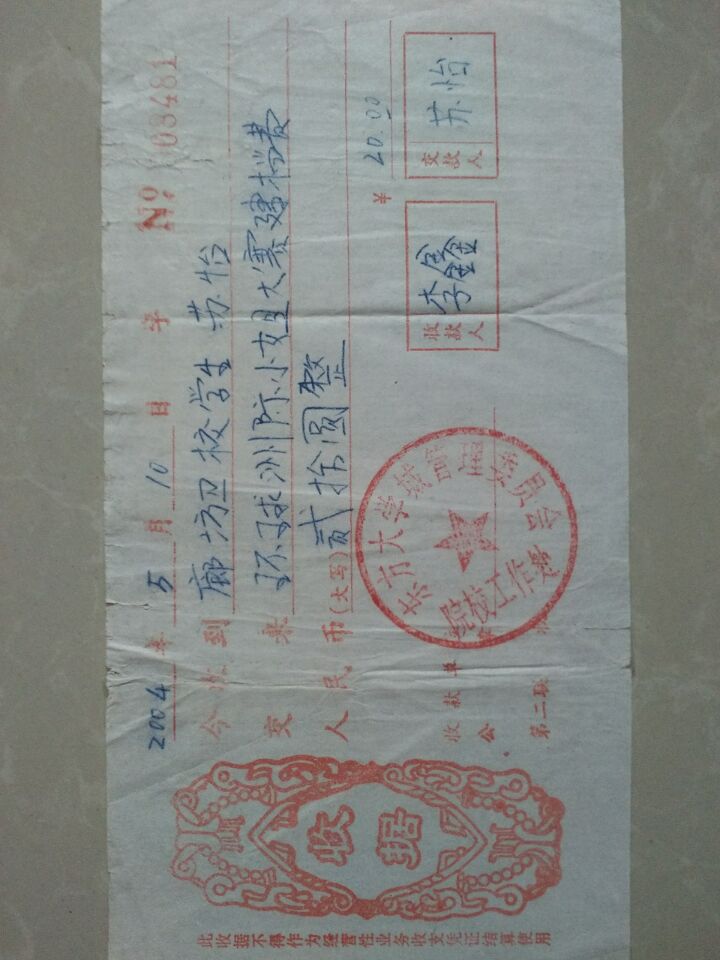 此收据不得作为经营性业务收支凭证结算使用
收据
2004年5月10日 字 № 0008481
今收到 廊坊卫校学生 苏怡
交来 环球洲际小姐大赛建档费
人民币(大写) 贰拾圆整
¥ 20.00
收款单
公
第二联
收款人 李鑫
交款人 苏怡
东方大学城管理委员会
院校工作处